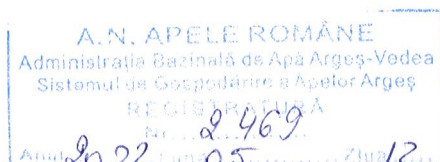 A.N. APELE ROMÂNE
Administraţia Bazinală de Apă Argeş-Vedea
Sistemul de Gospodărire a Apelor Argeş
REGISTRATURĂ
Nr. 2469
Anul 2022 Luna 05 Ziua 12